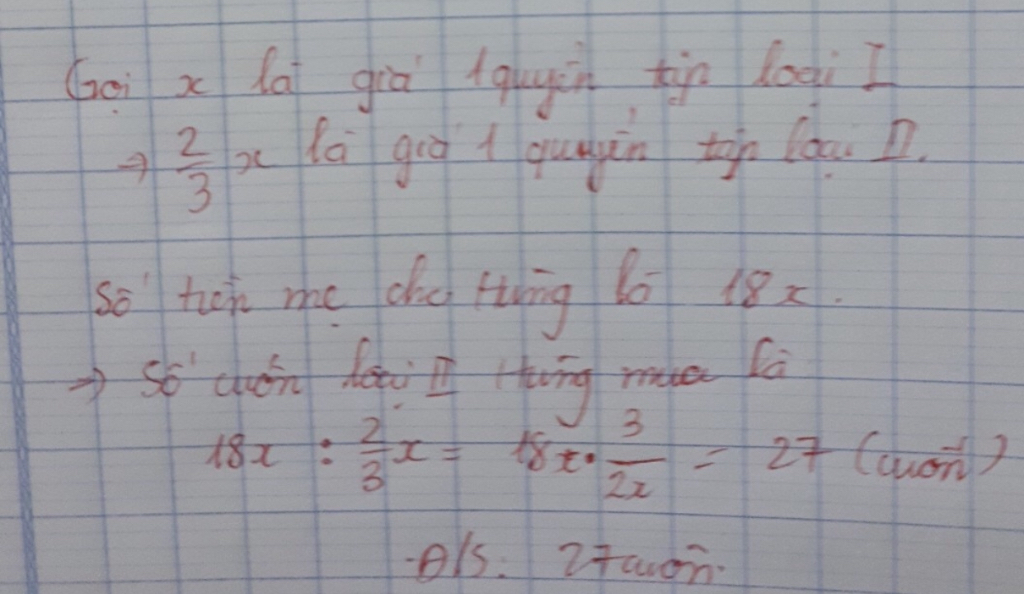 Gọi x là giá 1 quyển tập loại I
→ 2/3 x là giá 1 quyển tập loại II.
Số tiền mẹ cho Hùng là 18x.
→ Số cuốn loại II Hùng mua là
18x : 2/3 x = 18x · 3/2x = 27 (cuốn)
Đ/S: 27 cuốn.